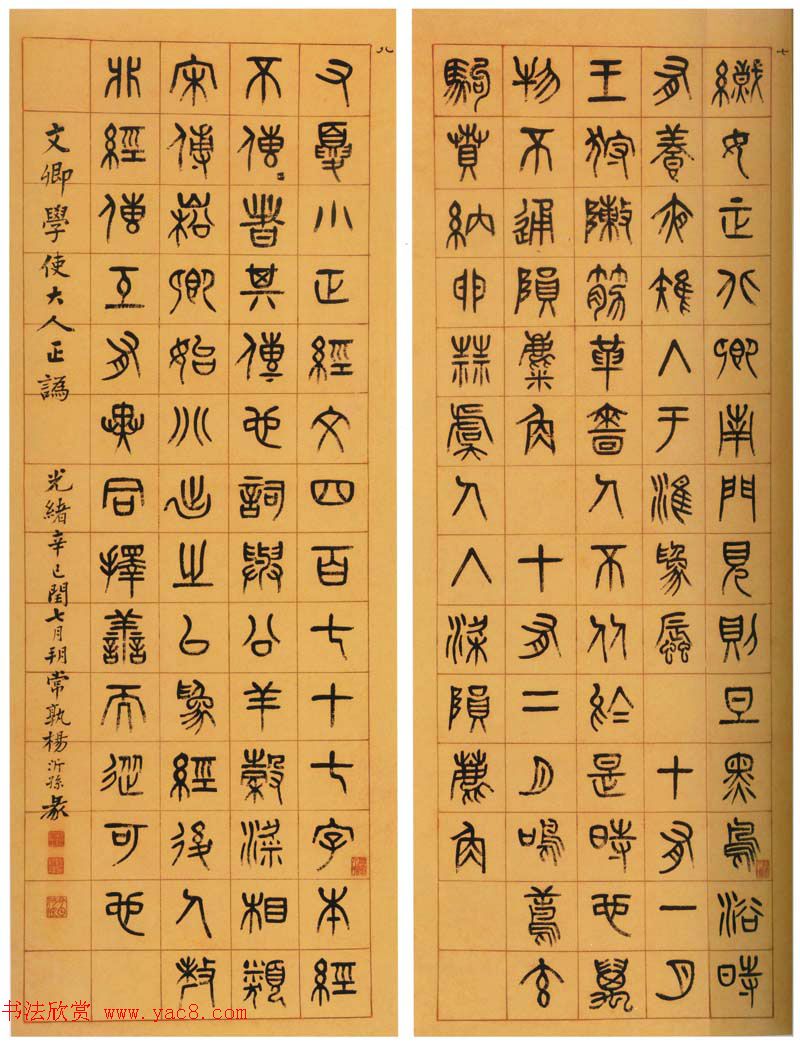 七
織女正北鄉南門見則旦黑鳥浴時
有養夜雉入于淮為蜃　十有一月
王狩陳筋革嗇人不從於是時也萬
物不通隕麋角　十有二月鳴鳶玄
駒賁納卵蒜虞人入梁隕麋角
八
右夏小正經文四百七十七字本經
不傳〻著其傳也詞與公羊穀梁相類
宋傅崧卿始分出之以為經後人
非經傳互有異同擇善而從可也
文卿學使大人正譌　光緒辛巳閏七月朔常孰楊沂孫篆
书法欣赏 www.yac8.com